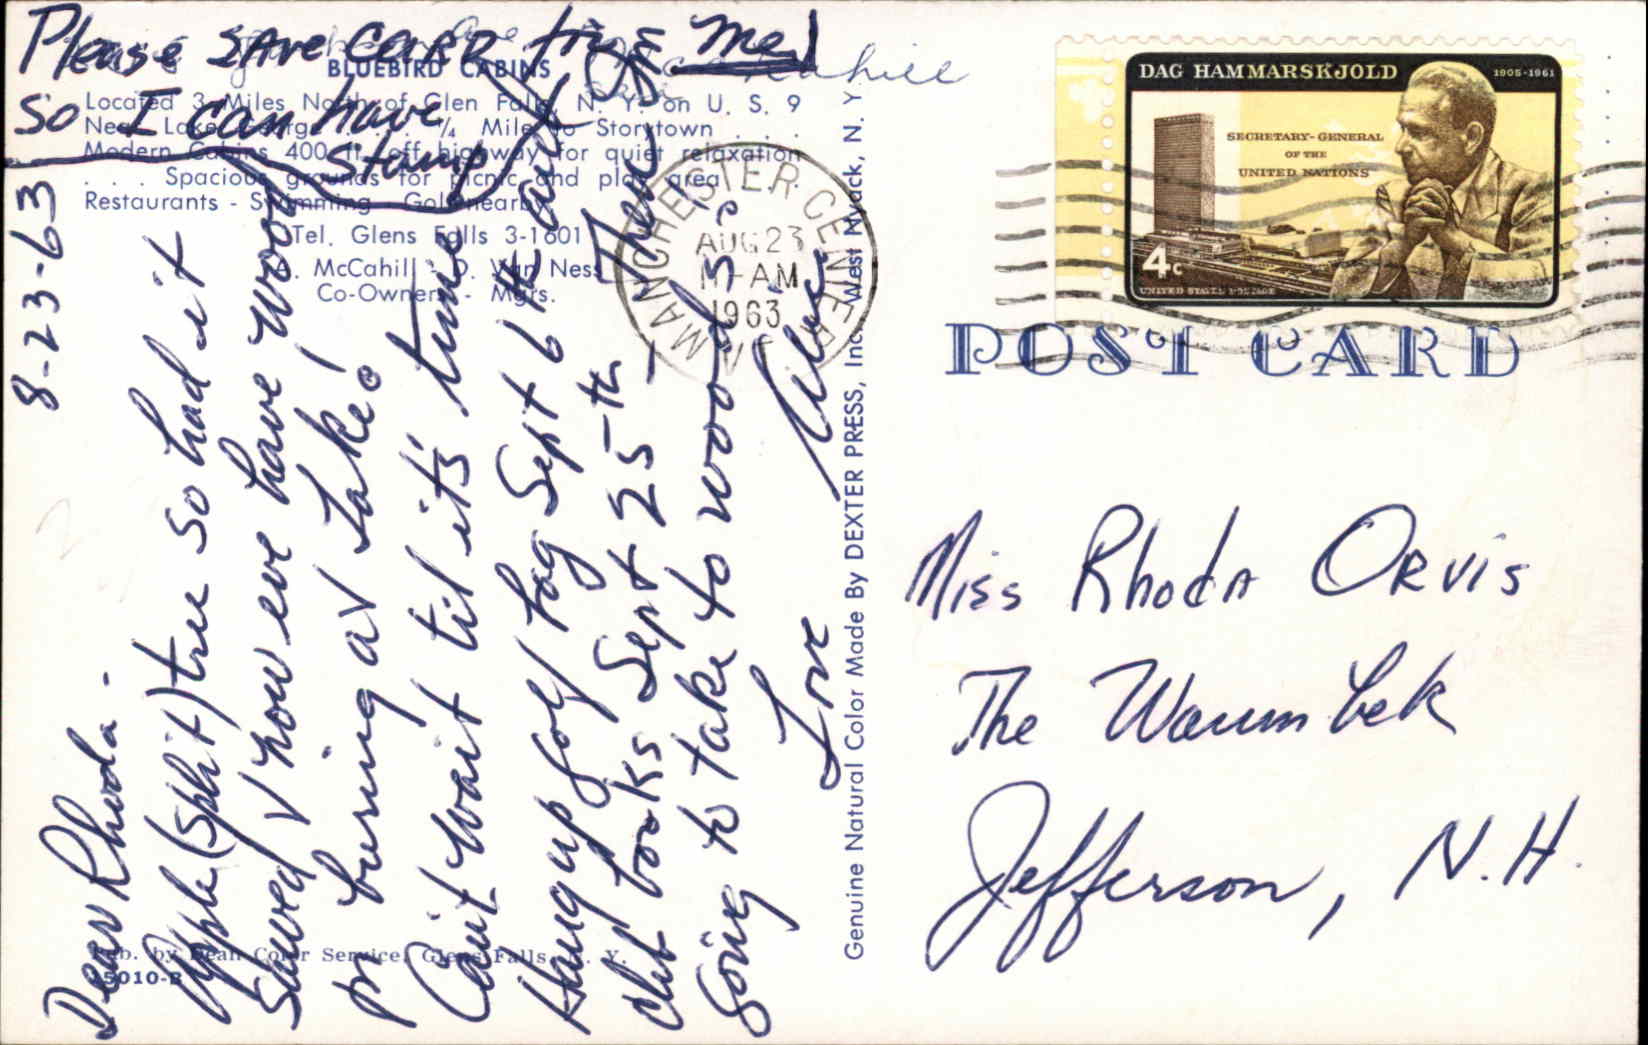 Please SAve CARD for me
so I can have
stamp
BLUEBIRD CABINS
Located 3 Miles North of Glen Falls, N. Y. on U. S. 9
Near Lake George . . . . ¼ Mile to Storytown . . .
Modern Cabins 400 ft. off highway for quiet relaxation
. . . Spacious grounds for picnic and play area .
Restaurants - Swimming Golf nearby
Tel. Glens Falls 3-1601
McCahill - D. Van Ness
Co-Owners - Mgrs.
8-23-63
Dear Rhoda -
Apple (split) tree so had it
sawed & now we have wood
for burning at Lake!
Can't wait til it's time
Hang up golf bag Sept 6th and
club books Sept 25th - Then
going to take to woods.
Love
Pub. by Dean Color Service, Glens Falls, N. Y.
15010-B
Genuine Natural Color Made By DEXTER PRESS, Inc. West Nyack, N. Y.
MANCHESTER CENTER
AUG 23
11-AM
1963
DAG HAMMARSKJOLD
1905-1961
SECRETARY-GENERAL
OF THE
UNITED NATIONS
4c
UNITED STATES POSTAGE
POST CARD
Miss Rhoda ORvis
The Waumbek
Jefferson, N.H.